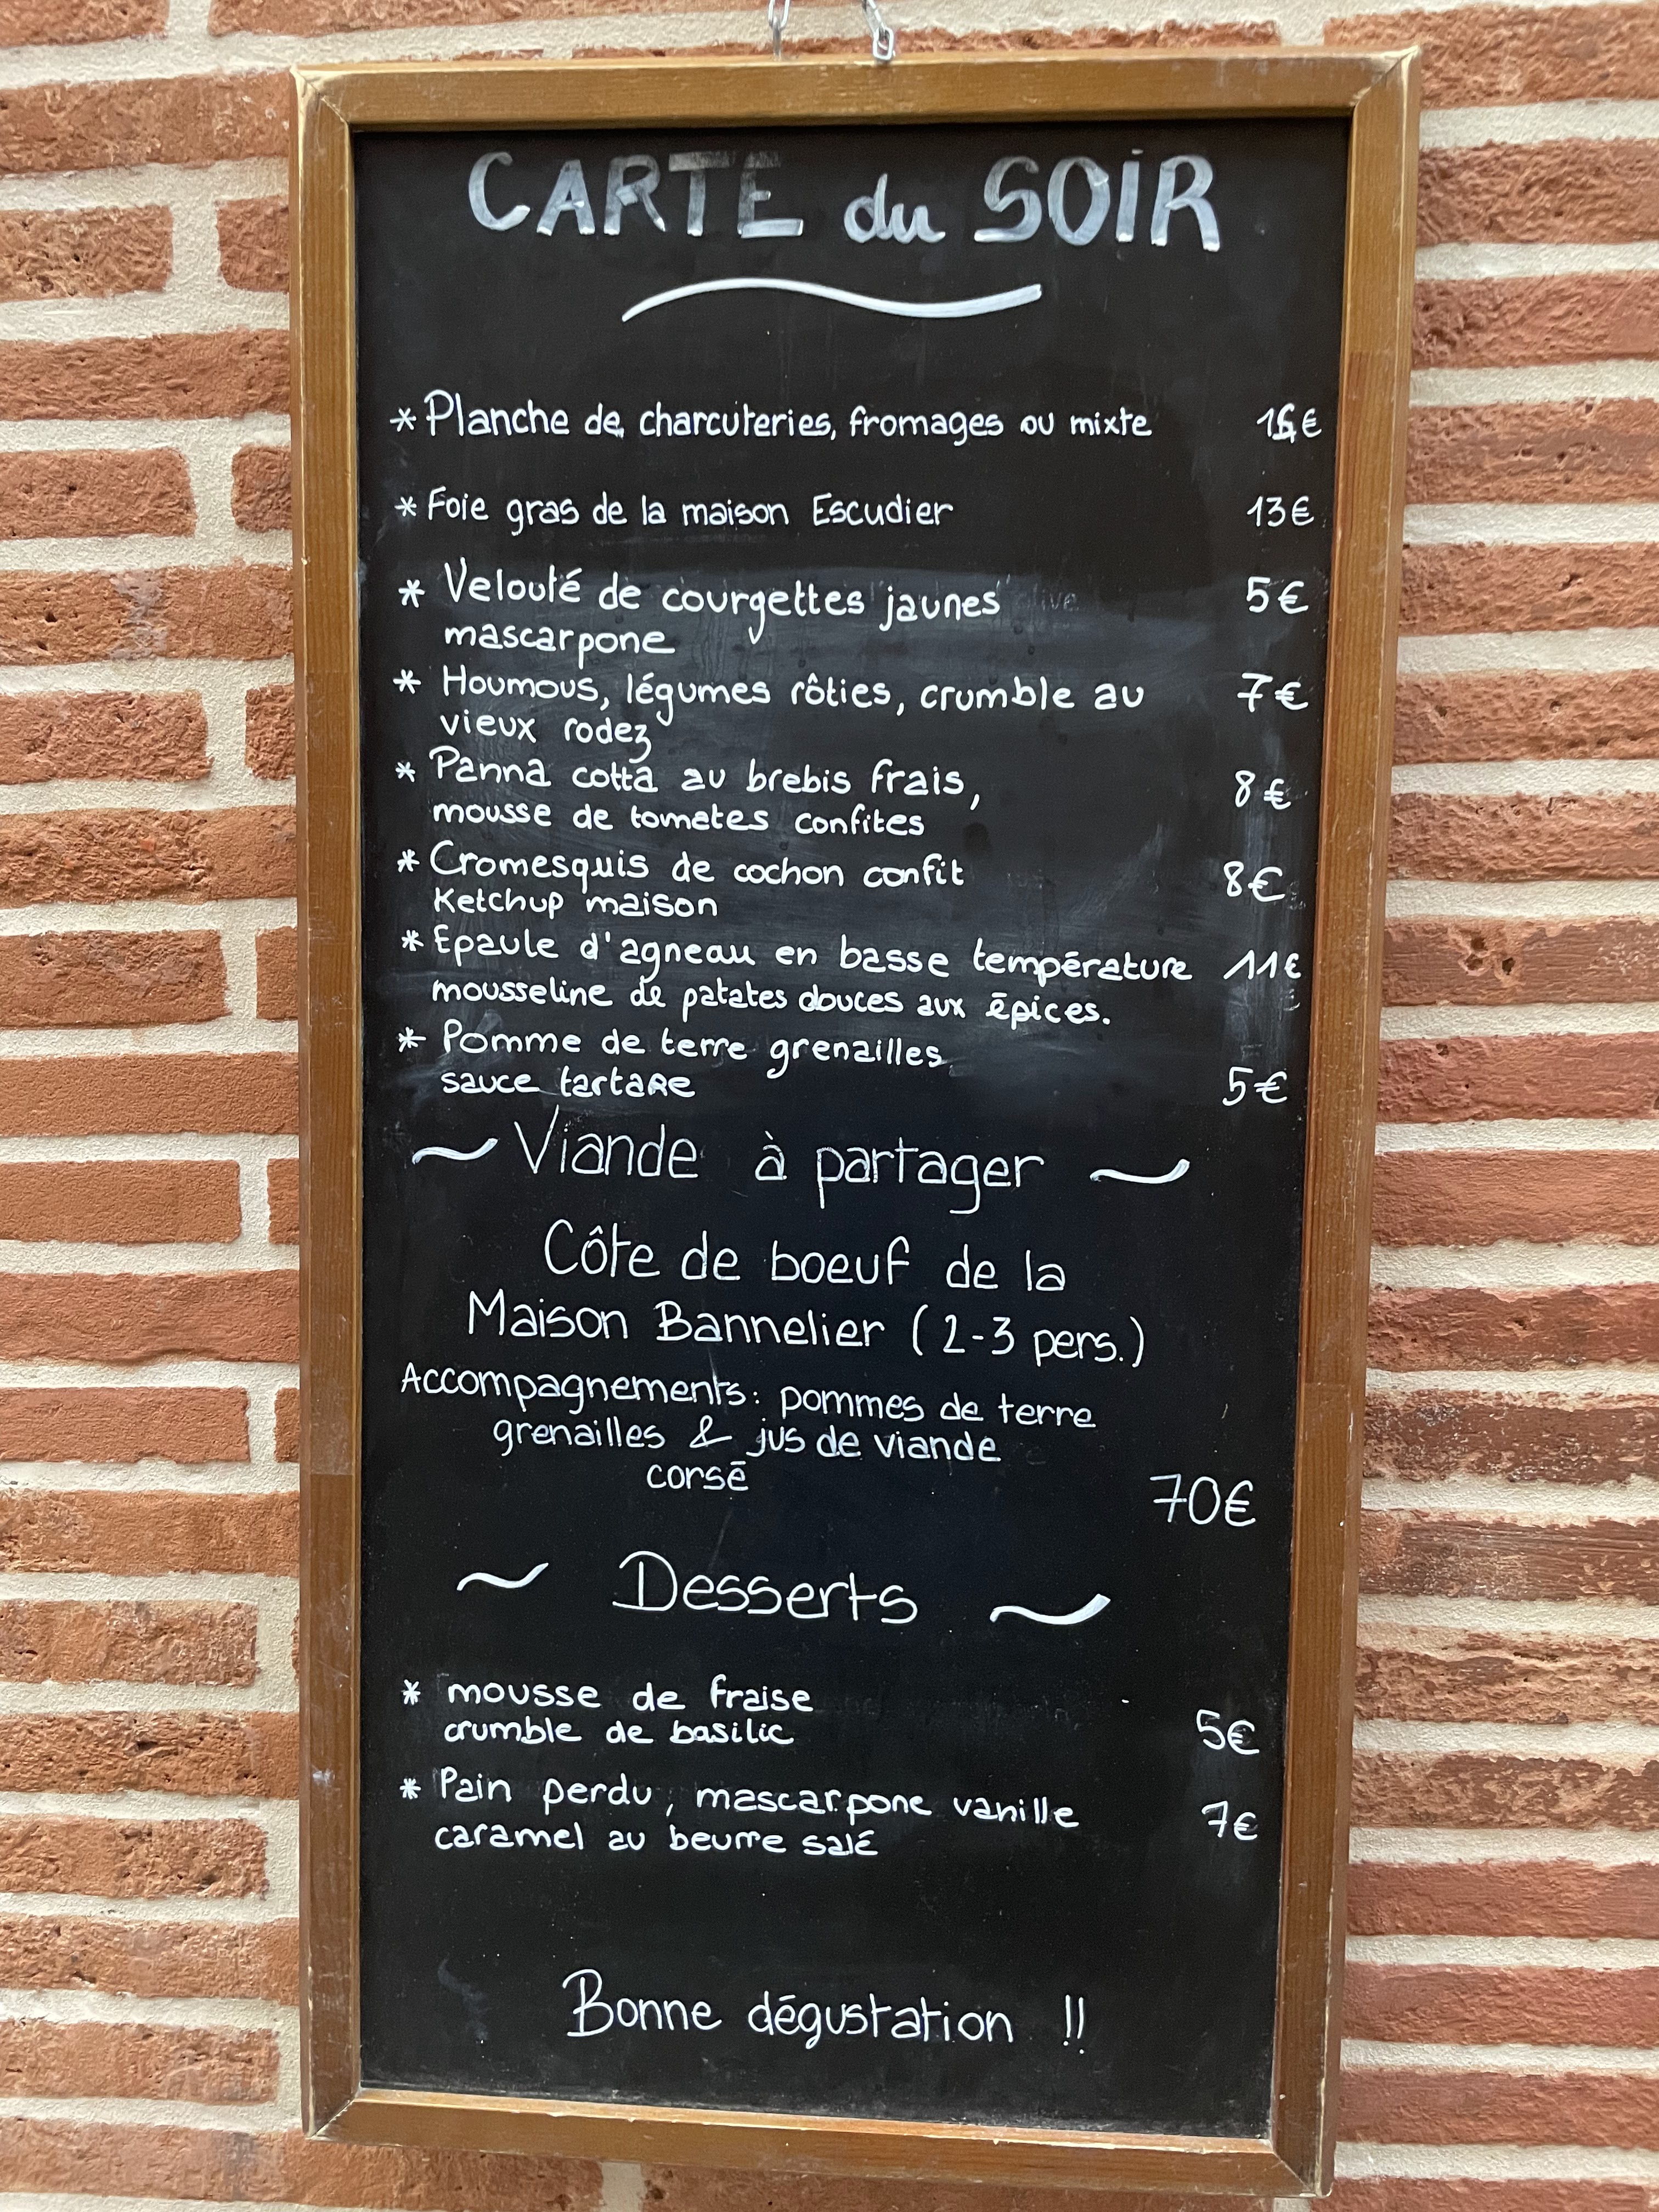 CARTE du SOIR
* Planche de charcuteries, fromages ou mixte 16€
* Foie gras de la maison Escudier 13€
* Velouté de courgettes jaunes 5€
mascarpone
* Houmous, légumes rôties, crumble au 7€
vieux rodez
* Panna cotta au brebis frais, 8€
mousse de tomates confites
* Cromesquis de cochon confit 8€
Ketchup maison
* Epaule d'agneau en basse température 11€
mousseline de patates douces aux épices.
* Pomme de terre grenailles
sauce tartare 5€
~ Viande à partager ~
Côte de boeuf de la
Maison Bannelier (2-3 pers.)
Accompagnements: pommes de terre
grenailles & jus de viande
corsé
70€
~ Desserts ~
* mousse de fraise
crumble de basilic 5€
* Pain perdu, mascarpone vanille 7€
caramel au beurre salé
Bonne dégustation !!